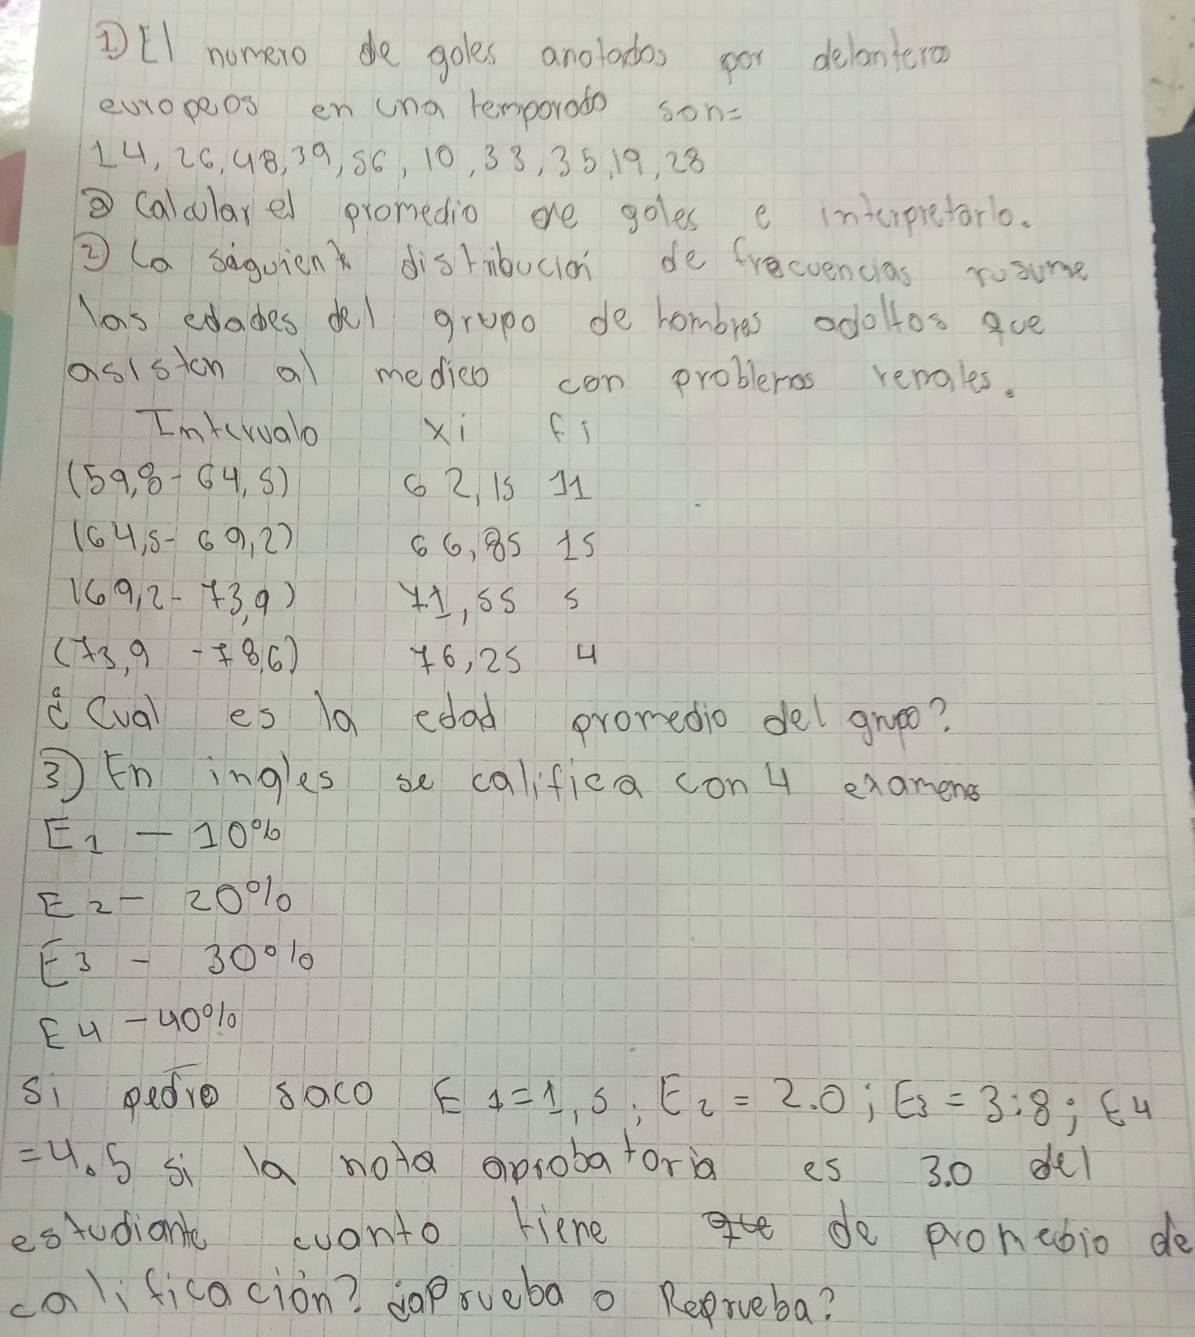 ① El numero de goles anotados por delanteros
europeos en una temporada son=
14, 26, 48, 39, 56, 10, 33, 35, 19, 28
ⓐ Calcular el promedio de goles e interpretarlo.
② La siguiente distribución de frecuencias resume
las edades del grupo de hombres adoltos que
asisten al medico con problemas renales.
Intervalo xi fi
(59,8 - 64,5) 62,15 11
(64,5 - 69,2) 66,85 15
(69,2 - 73,9) 71,55 5
(73,9 - 78,6) 76,25 4
¿Cual es la edad promedio del grupo?
3) En ingles se califica con 4 examenes
E1 - 10%
E2 - 20%
E3 - 30%
E4 - 40%
Si pedro saco E1=1,5; E2 = 2.0; E3 = 3:8; E4
=4.5 si la nota aprobatoria es 3.0 del
estudiante cuanto tiene de promedio de
calificación? ¿aprueba o Reprueba?